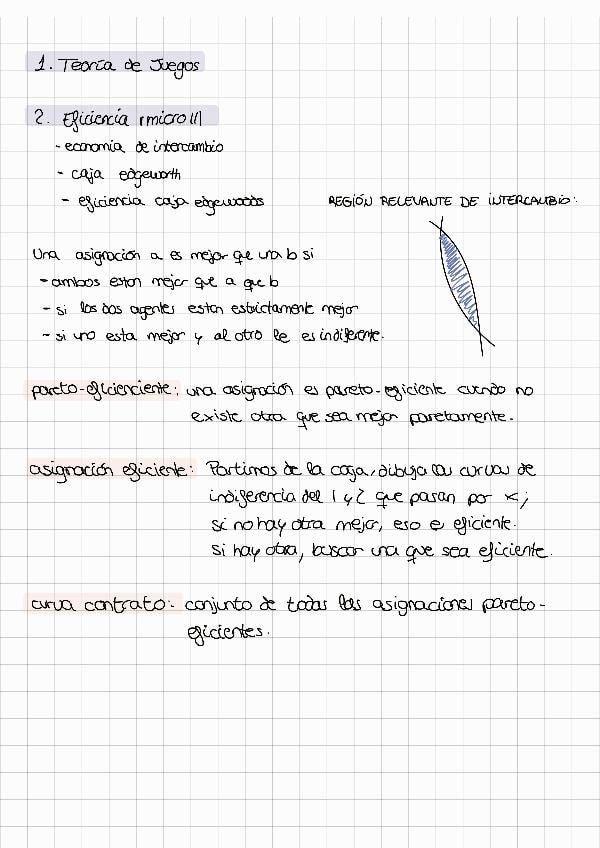 1. Teoría de Juegos
2. Eficiencia (micro III)
- economía de intercambio
- caja edgeworth
- eficiencia caja edgewoods
REGIÓN RELEVANTE DE INTERCAMBIO:
Una asignación a es mejor que una b si
- ambos estan mejor que a que b
- si los dos agentes estan estrictamente mejor
- si uno esta mejor y al otro le es indiferente.
pareto-eficienciente: una asignación es pareto-eficiente cuando no
existe otra que sea mejor paretamente.
asignación eficiente: Partimos de la caja, dibuja las curvas de
indiferencia del 1 y 2 que pasan por x;
si no hay otra mejor, eso e eficiente.
si hay otra, buscar una que sea eficiente.
curva contrato: conjunto de todas las asignaciones pareto-
eficientes.